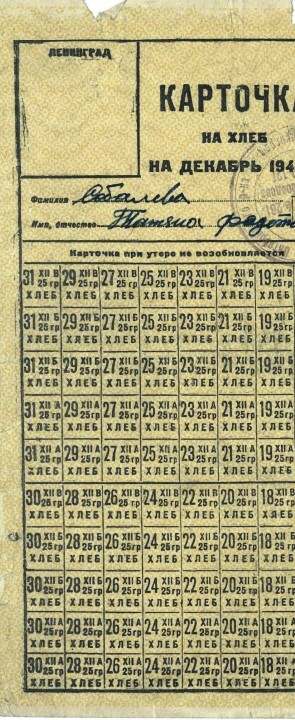 ЛЕНИНГРАД
КАРТОЧКА
НА ХЛЕБ
НА ДЕКАБРЬ 194
Фамилия Соболева
Имя, отчество Татьяна Федот
Карточка при утере не возобновляется
31 XII В 25 гр 29 XII В 25 гр 27 XII В 25 гр 25 XII В 25 гр 23 XII В 25 гр 21 XII В 25 гр 19 XII В 25 гр
ХЛЕБ ХЛЕБ ХЛЕБ ХЛЕБ ХЛЕБ ХЛЕБ ХЛЕБ
31 XII Б 25 гр 29 XII Б 25 гр 27 XII Б 25 гр 25 XII Б 25 гр 23 XII Б 25 гр 21 XII Б 25 гр 19 XII Б 25 гр
ХЛЕБ ХЛЕБ ХЛЕБ ХЛЕБ ХЛЕБ ХЛЕБ ХЛЕБ
31 XII Б 25 гр 29 XII Б 25 гр 27 XII Б 25 гр 25 XII Б 25 гр 23 XII Б 25 гр 21 XII Б 25 гр 19 XII Б 25 гр
ХЛЕБ ХЛЕБ ХЛЕБ ХЛЕБ ХЛЕБ ХЛЕБ ХЛЕБ
31 XII А 25 гр 29 XII А 25 гр 27 XII А 25 гр 25 XII А 25 гр 23 XII А 25 гр 21 XII А 25 гр 19 XII А 25 гр
ХЛЕБ ХЛЕБ ХЛЕБ ХЛЕБ ХЛЕБ ХЛЕБ ХЛЕБ
31 XII А 25 гр 29 XII А 25 гр 27 XII А 25 гр 25 XII А 25 гр 23 XII А 25 гр 21 XII А 25 гр 19 XII А 25 гр
ХЛЕБ ХЛЕБ ХЛЕБ ХЛЕБ ХЛЕБ ХЛЕБ ХЛЕБ
30 XII В 25 гр 28 XII В 25 гр 26 XII В 25 гр 24 XII В 25 гр 22 XII В 25 гр 20 XII В 25 гр 18 XII В 25 гр
ХЛЕБ ХЛЕБ ХЛЕБ ХЛЕБ ХЛЕБ ХЛЕБ ХЛЕБ
30 XII Б 25 гр 28 XII Б 25 гр 26 XII Б 25 гр 24 XII Б 25 гр 22 XII Б 25 гр 20 XII Б 25 гр 18 XII Б 25 гр
ХЛЕБ ХЛЕБ ХЛЕБ ХЛЕБ ХЛЕБ ХЛЕБ ХЛЕБ
30 XII Б 25 гр 28 XII Б 25 гр 26 XII Б 25 гр 24 XII Б 25 гр 22 XII Б 25 гр 20 XII Б 25 гр 18 XII Б 25 гр
ХЛЕБ ХЛЕБ ХЛЕБ ХЛЕБ ХЛЕБ ХЛЕБ ХЛЕБ
30 XII А 25 гр 28 XII А 25 гр 26 XII А 25 гр 24 XII А 25 гр 22 XII А 25 гр 20 XII А 25 гр 18 XII А 25 гр
ХЛЕБ ХЛЕБ ХЛЕБ ХЛЕБ ХЛЕБ ХЛЕБ ХЛЕБ
30 XII А 25 гр 28 XII А 25 гр 26 XII А 25 гр 24 XII А 25 гр 22 XII А 25 гр 20 XII А 25 гр 18 XII А 25 гр
ХЛЕБ ХЛЕБ ХЛЕБ ХЛЕБ ХЛЕБ ХЛЕБ ХЛЕБ